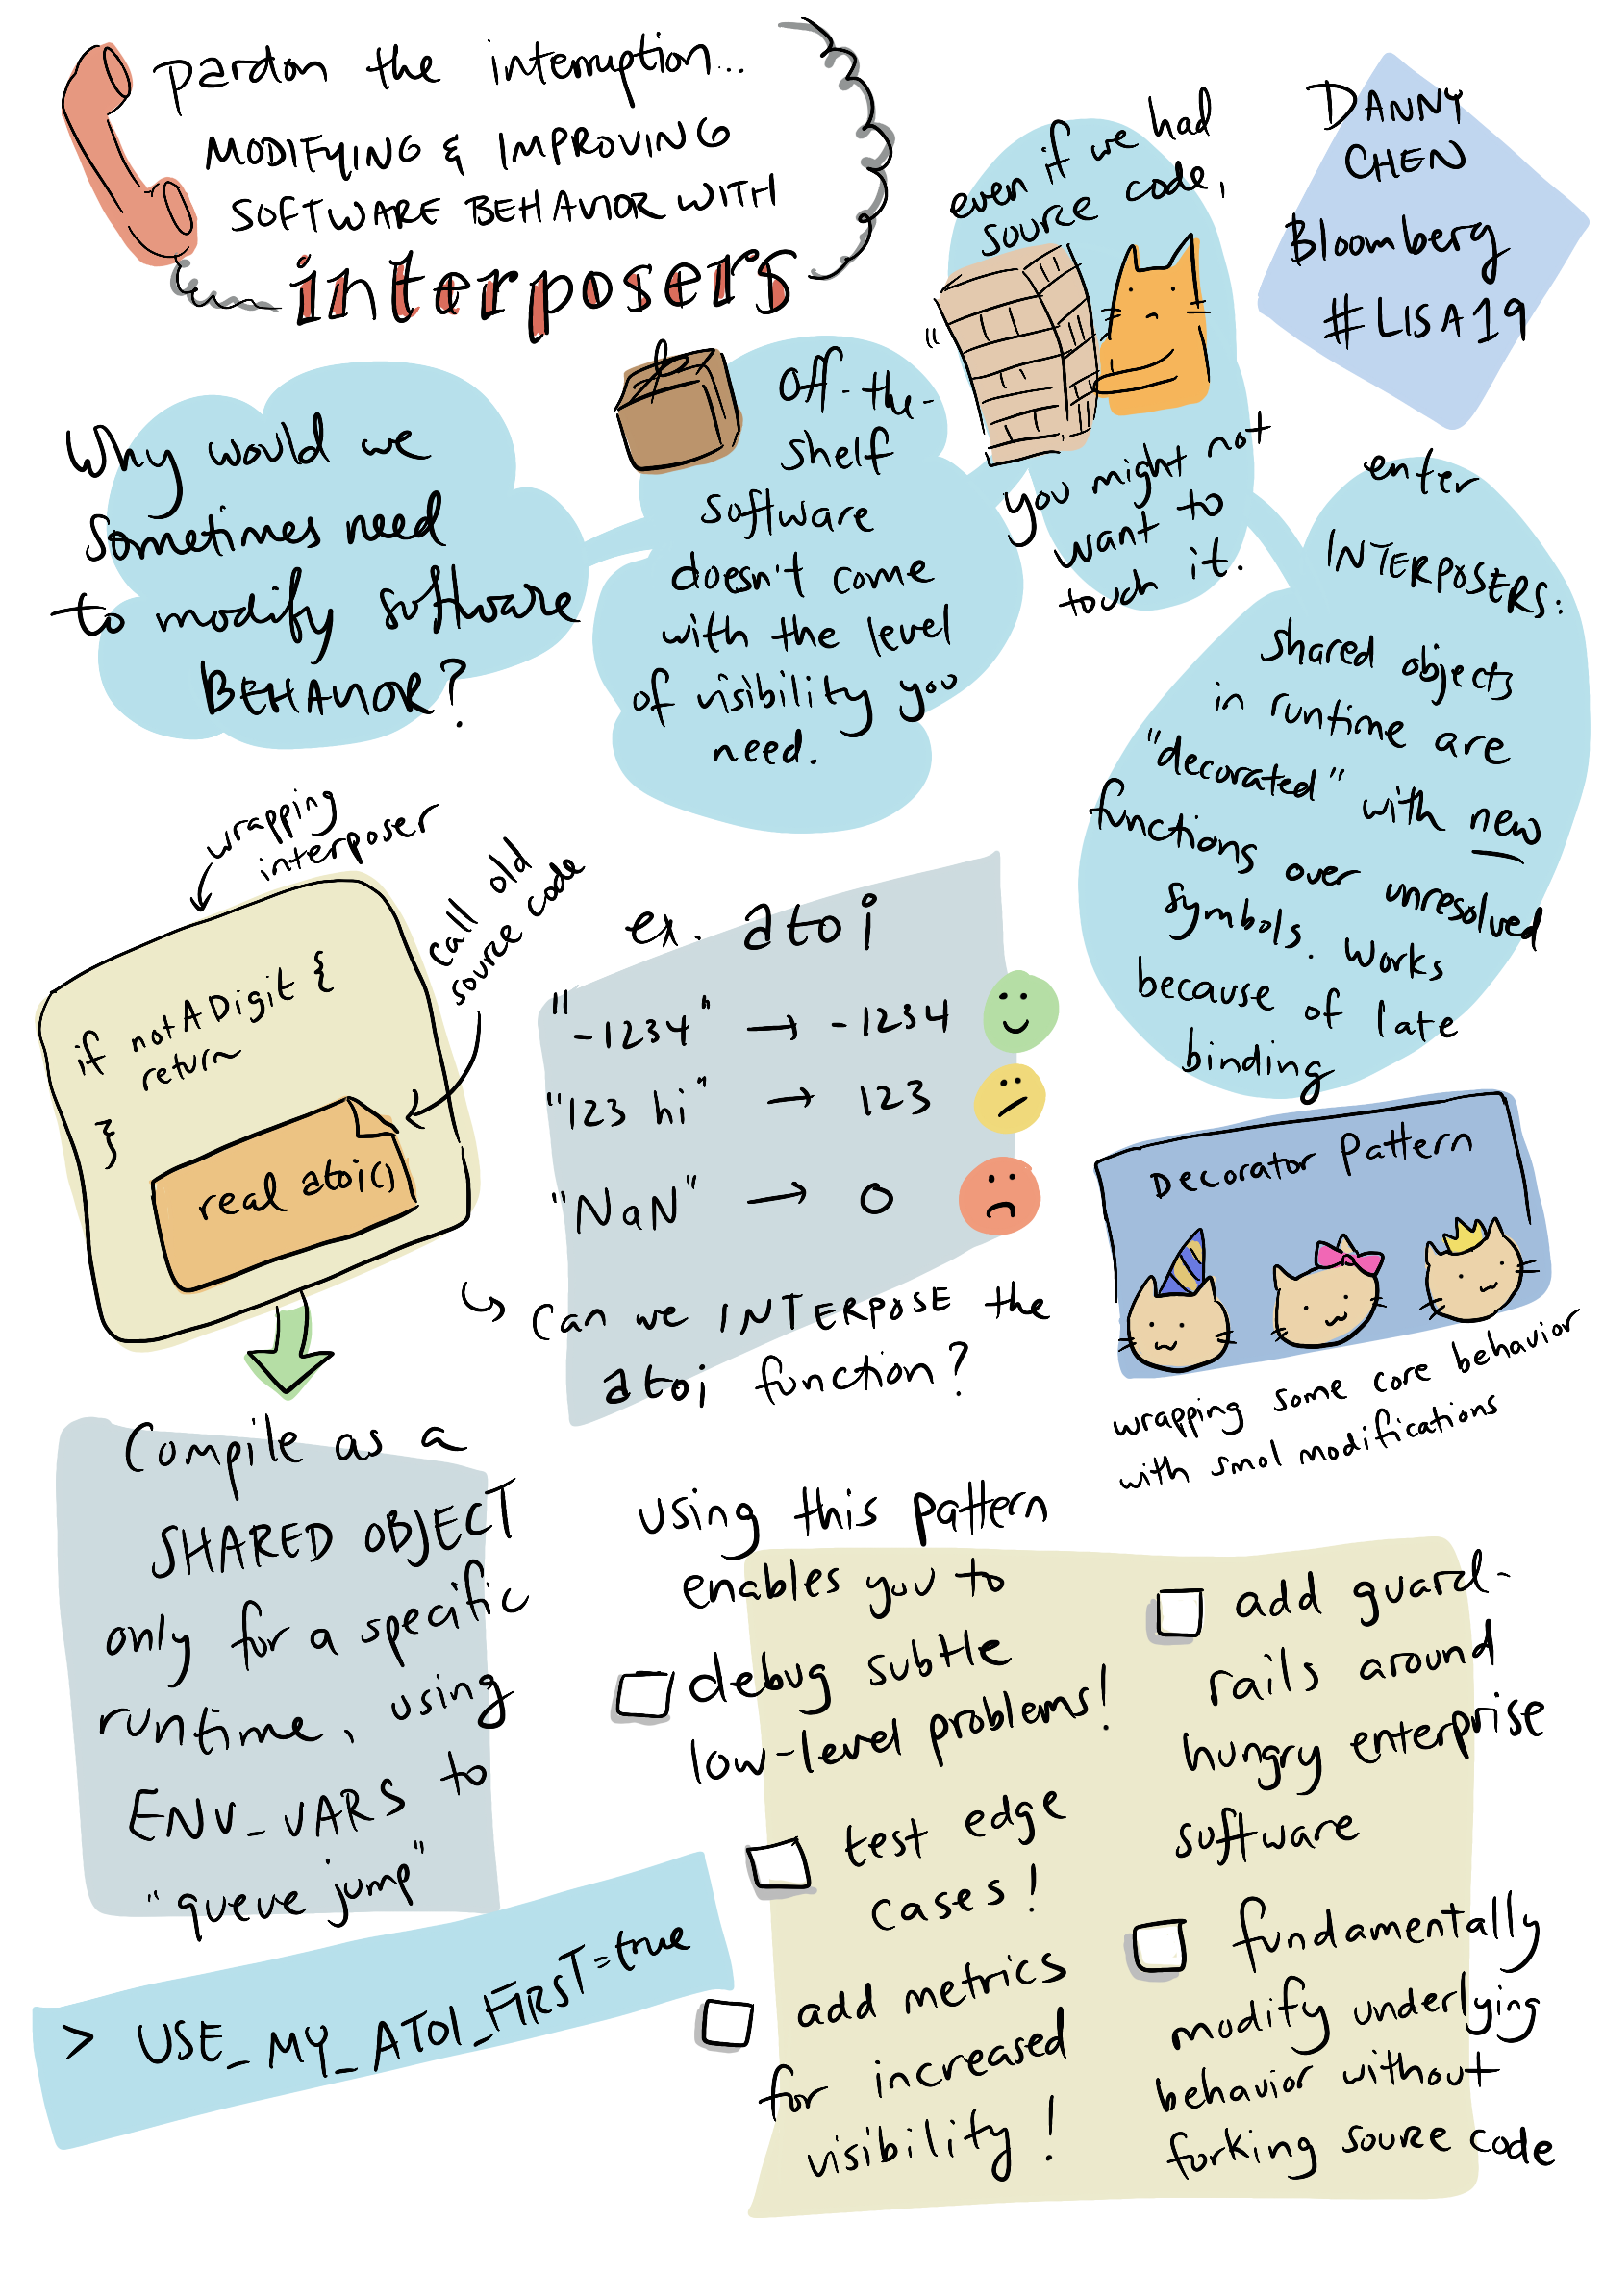 pardon the interruption...
MODIFYING & IMPROVING
SOFTWARE BEHAVIOR WITH
interposers
DANNY
CHEN
Bloomberg
#LISA19
Why would we
sometimes need
to modify software
BEHAVIOR?
Off-the-
shelf
software
doesn't come
with the level
of visibility you
need.
even if we had
source code,
you might not
want to
touch it.
enter
INTERPOSERS:
shared objects
in runtime are
"decorated" with new
functions over unresolved
symbols. Works
because of late
binding
wrapping
interposer
call old
source code
if notADigit {
return
}
real atoi()
ex. atoi
"-1234" → -1234
"123 hi" → 123
"NaN" → 0
can we INTERPOSE the
atoi function?
Decorator Pattern
wrapping some core behavior
with smol modifications
Compile as a
SHARED OBJECT
only for a specific
runtime, using
ENV_VARS to
"queue jump"
> USE_MY_ATOI_FIRST=true
using this pattern
enables you to
debug subtle
low-level problems!
test edge
cases!
add metrics
for increased
visibility!
add guard-
rails around
hungry enterprise
software
fundamentally
modify underlying
behavior without
forking source code